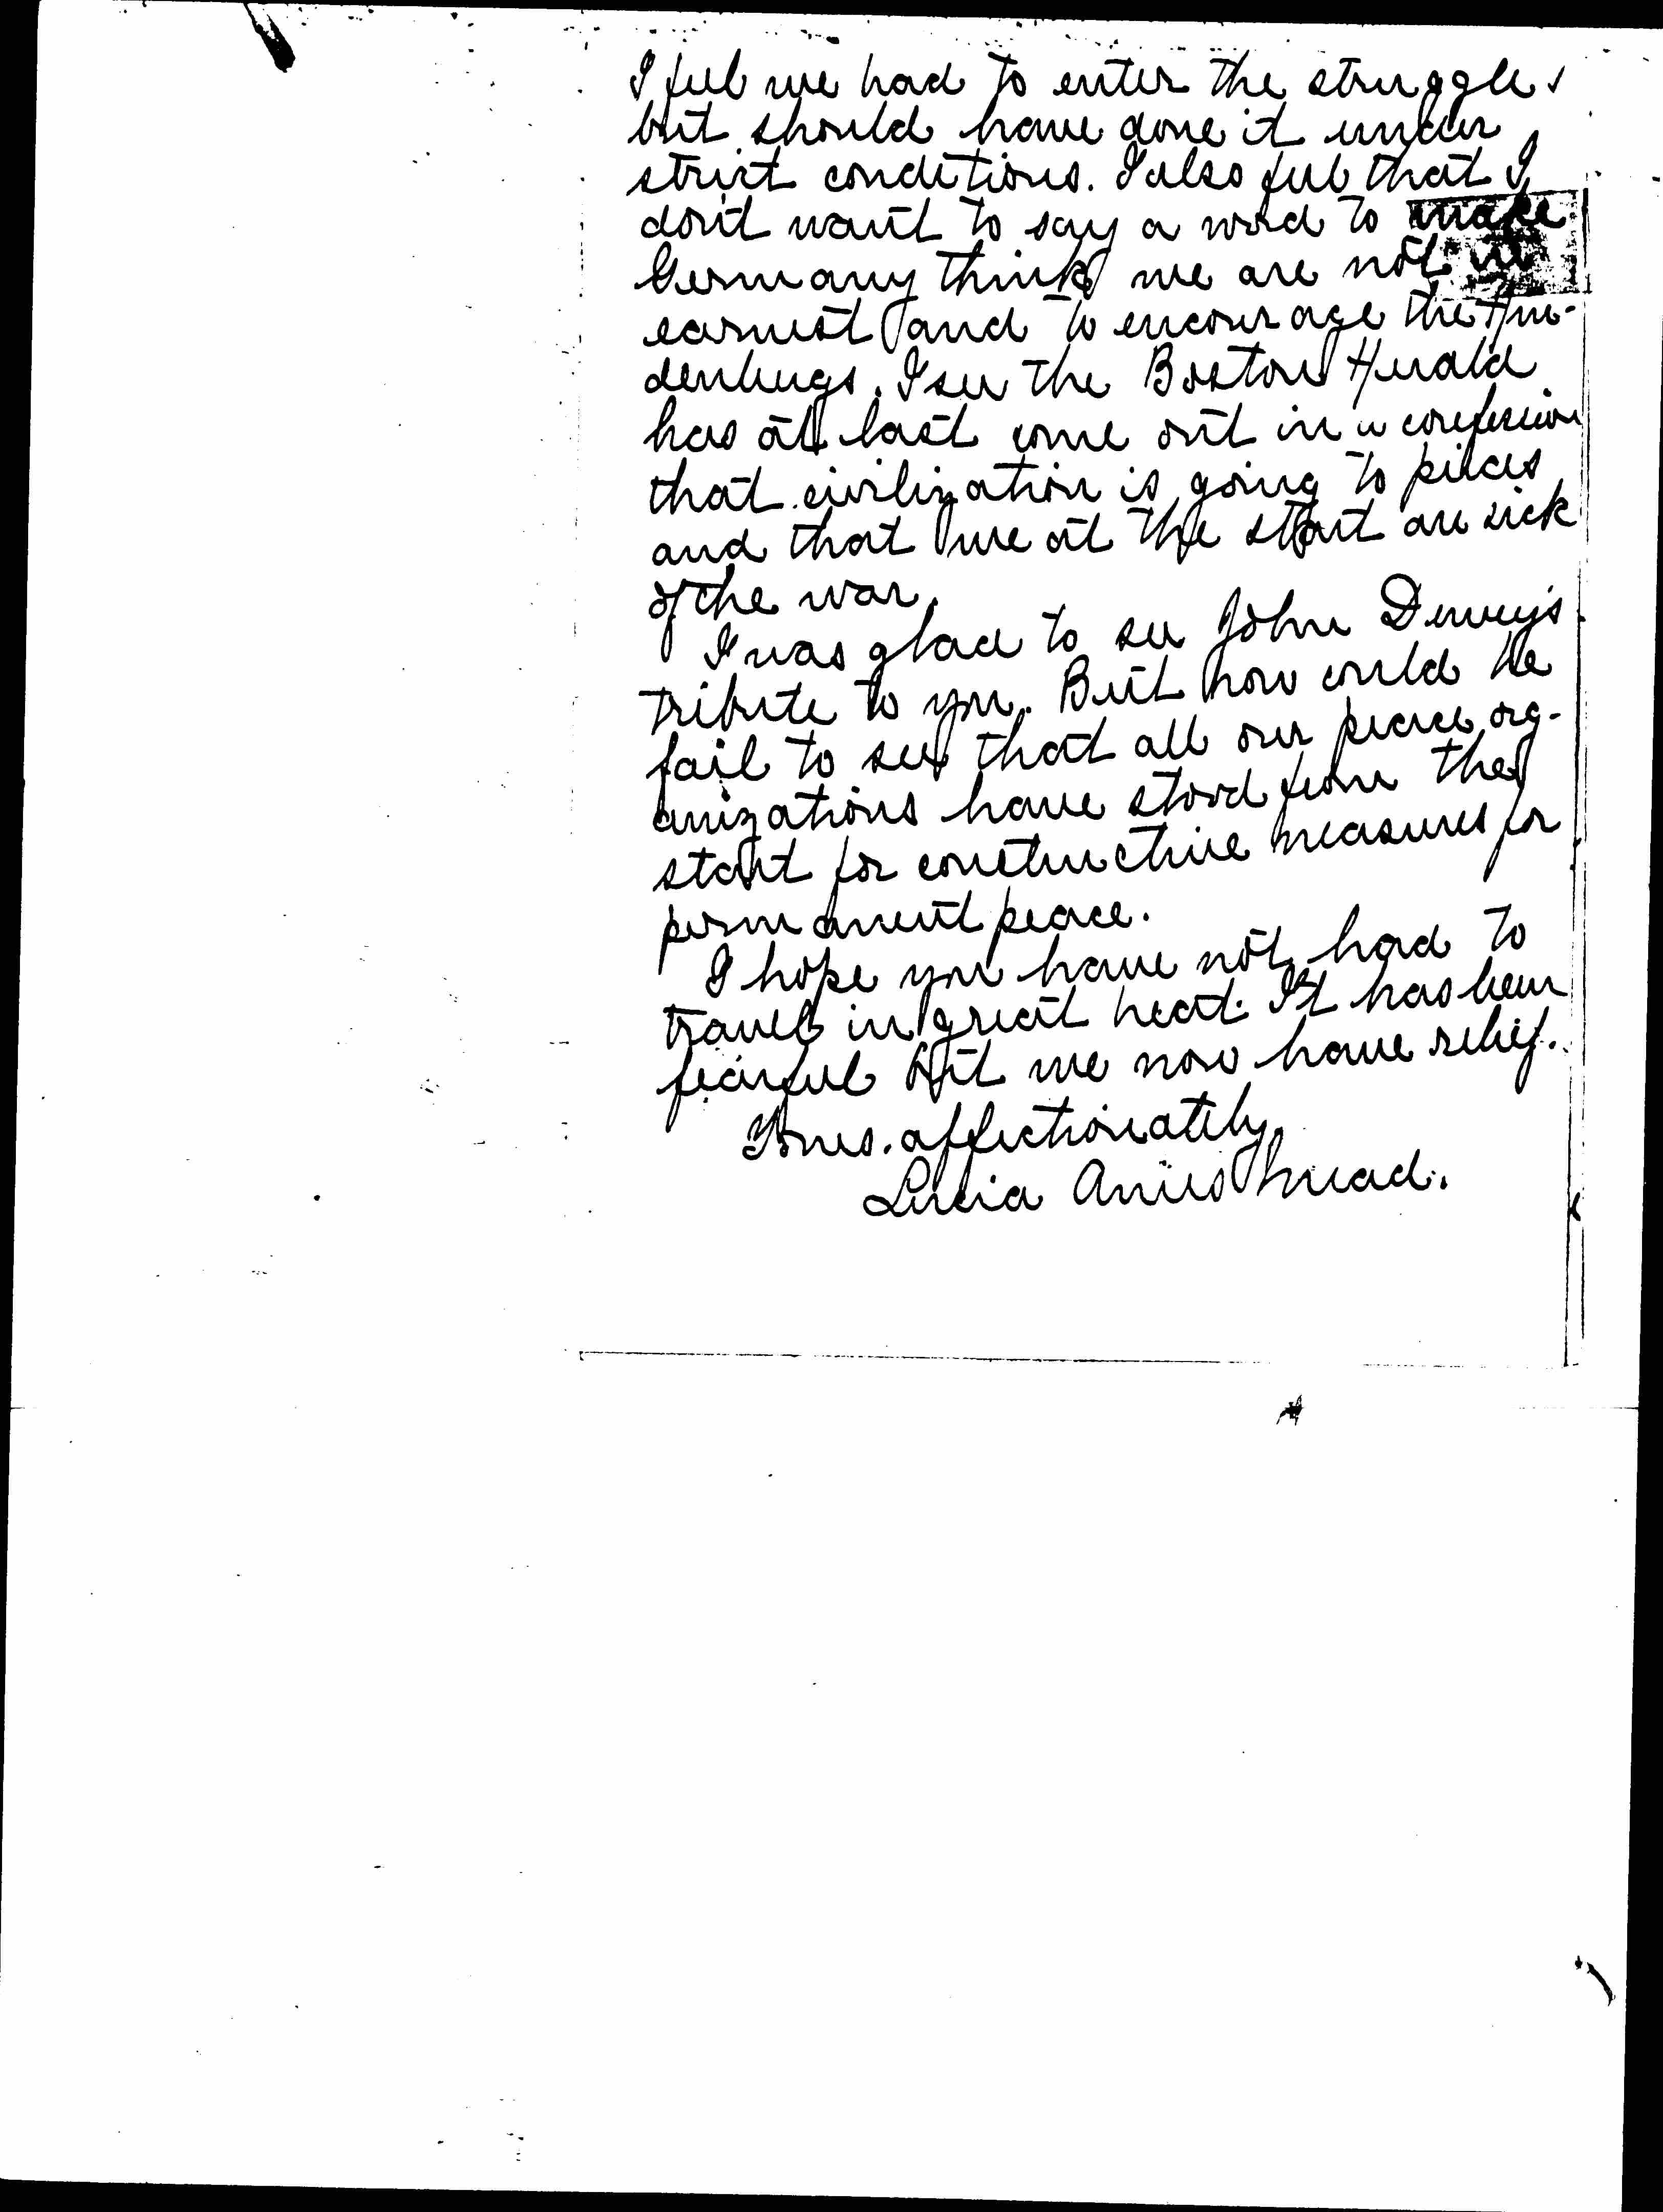 I feel we had to enter the struggle
but should have done it under
strict conditions. I also feel that I
don't want to say a word to make
Germany think we are not in
earnest and to encourage the Hin-
denbugs. I see the Boston Herald
has at last come out in a confession
that civilization is going to pieces
and that we at the start are sick
of the war.
I was glad to see John Dewey's
tribute to you. But how could he
fail to see that all our peace org-
anizations have stood from the
start for constructive measures for
permanent peace.
I hope you have not had to
travel in great heat. It has been
fearful but we now have relief.
Yours affectionately,
Lucia Ames Mead.